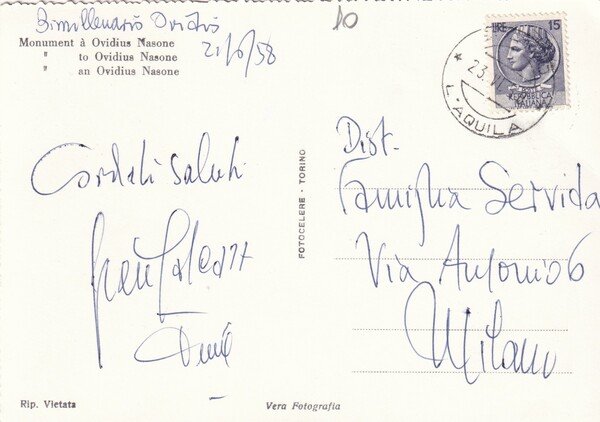 Bimillenario Ovidio
21/6/58
10
Monument à Ovidius Nasone
" to Ovidius Nasone
" an Ovidius Nasone
LIRE 15
REPVBBLICA
ITALIANA
* 23. V
L'AQUILA
Cordiali Saluti
FOTOCELERE - TORINO
Dist.
Famiglia Servida
Via Antonio 6
Milano
Rip. Vietata
Vera Fotografia